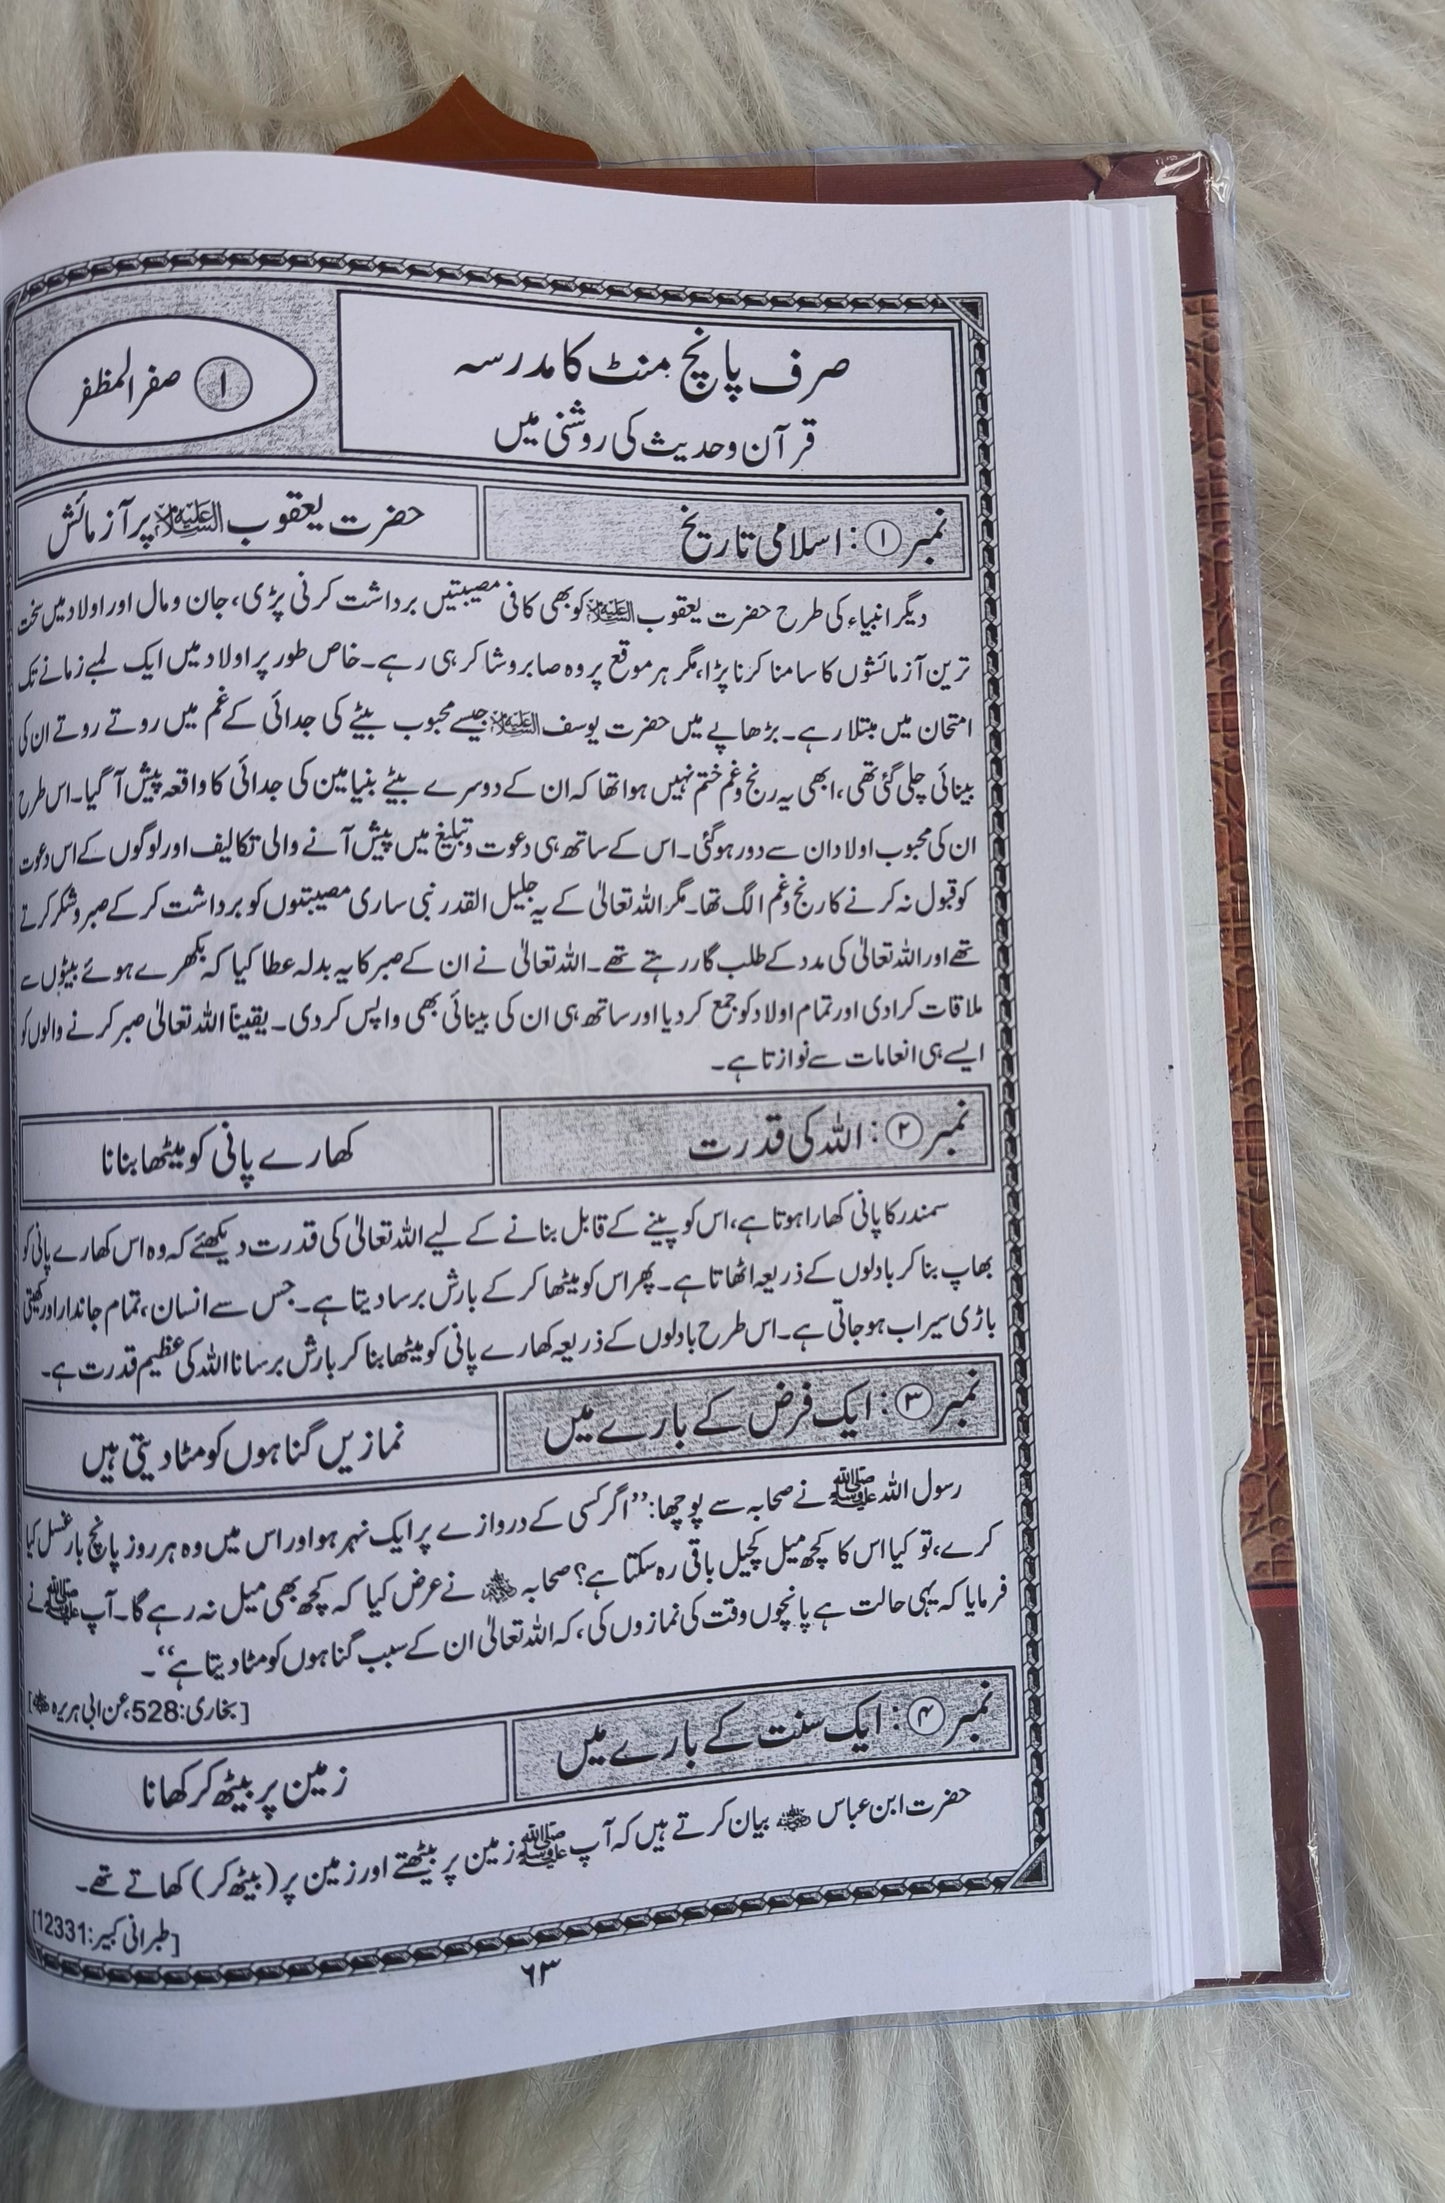 صرف پانچ منٹ کا مدرسہ
قرآن و حدیث کی روشنی میں
۱ صفر المظفر
نمبر ۱: اسلامی تاریخ
حضرت یعقوب علیہ السلام پر آزمائش
دیگر انبیاء کی طرح حضرت یعقوب علیہ السلام کو بھی کافی مصیبتیں برداشت کرنی پڑی، جان و مال اور اولاد میں سخت
ترین آزمائشوں کا سامنا کرنا پڑا، مگر ہر موقع پر وہ صابر و شاکر ہی رہے۔ خاص طور پر اولاد میں ایک لمبے زمانے تک
امتحان میں مبتلا رہے۔ بڑھاپے میں حضرت یوسف علیہ السلام جیسے محبوب بیٹے کی جدائی کے غم میں روتے روتے ان کی
بینائی چلی گئی تھی، ابھی یہ رنج و غم ختم نہیں ہوا تھا کہ ان کے دوسرے بیٹے بنیامین کی جدائی کا واقعہ پیش آگیا۔ اس طرح
ان کی محبوب اولاد ان سے دور ہوگئی۔ اس کے ساتھ ہی دعوت و تبلیغ میں پیش آنے والی تکالیف اور لوگوں کے اس دعوت
کو قبول نہ کرنے کا رنج و غم الگ تھا۔ مگر اللہ تعالیٰ کے یہ جلیل القدر نبی ساری مصیبتوں کو برداشت کر کے صبر و شکر کرتے
تھے اور اللہ تعالیٰ کی مدد کے طلب گار رہتے تھے۔ اللہ تعالیٰ نے ان کے صبر کا یہ بدلہ عطا کیا کہ بکھرے ہوئے بیٹوں سے
ملاقات کرا دی اور تمام اولاد کو جمع کر دیا اور ساتھ ہی ان کی بینائی بھی واپس کر دی۔ یقیناً اللہ تعالیٰ صبر کرنے والوں کو
ایسے ہی انعامات سے نوازتا ہے۔
نمبر ۲: اللہ کی قدرت
کھارے پانی کو میٹھا بنانا
سمندر کا پانی کھارا ہوتا ہے، اس کو پینے کے قابل بنانے کے لیے اللہ تعالیٰ کی قدرت دیکھئے کہ وہ اس کھارے پانی کو
بھاپ بنا کر بادلوں کے ذریعہ اٹھاتا ہے۔ پھر اس کو میٹھا کر کے بارش برسا دیتا ہے۔ جس سے انسان، تمام جاندار اور کھیتی
باڑی سیراب ہو جاتی ہے۔ اس طرح بادلوں کے ذریعہ کھارے پانی کو میٹھا بنا کر بارش برسانا اللہ کی عظیم قدرت ہے۔
نمبر ۳: ایک فرض کے بارے میں
نمازیں گناہوں کو مٹا دیتی ہیں
رسول اللہ ﷺ نے صحابہ سے پوچھا: ”اگر کسی کے دروازے پر ایک نہر ہو اور اس میں وہ ہر روز پانچ بار غسل کیا
کرے، تو کیا اس کا کچھ میل کچیل باقی رہ سکتا ہے؟ صحابہ رضی اللہ عنہم نے عرض کیا کہ کچھ بھی میل نہ رہے گا۔ آپ ﷺ نے
فرمایا کہ یہی حالت ہے پانچوں وقت کی نمازوں کی، کہ اللہ تعالیٰ ان کے سبب گناہوں کو مٹا دیتا ہے“۔
[بخاری: 528، عن ابی ہریرہ رضی اللہ عنہ]
نمبر ۴: ایک سنت کے بارے میں
زمین پر بیٹھ کر کھانا
حضرت ابن عباس رضی اللہ عنہ بیان کرتے ہیں کہ آپ ﷺ زمین پر بیٹھتے اور زمین پر (بیٹھ کر) کھاتے تھے۔
[طبرانی کبیر: 12331]
۶۳